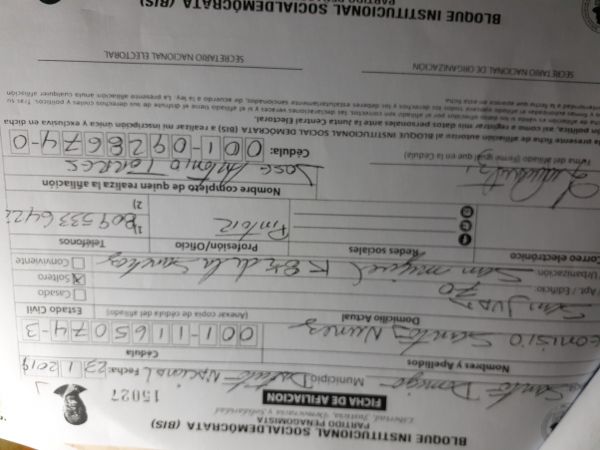 BLOQUE INSTITUCIONAL SOCIALDEMÓCRATA (BIS)
PARTIDO PENAGOMISTA
Libertad, Justicia, Democracia y Solidaridad
FICHA DE AFILIACION 15027
Santo Domingo Municipio Distrito Nacional Fecha: 23 1 2019
Nombres y Apellidos Cédula
Santos Nunez 001-1165074-3
Domicilio Actual (Anexar copia de cédula del afiliado) Estado Civil
San Juan 70 Casado
Apt. / Edificio: Soltero
Urbanización: San miguel Conviviente
Correo electrónico Redes sociales Profesión/Oficio Teléfonos
Pintor 1) 8095336422
2)
Nombre completo de quien realiza la afiliación
Jose Antonio Torres
Firma del Afiliado (Firmar igual que en la Cédula) Cédula: 001-0928674-0
la presente ficha de afiliación autorizo al BLOQUE INSTITUCIONAL SOCIALDEMÓCRATA (BIS) a realizar mi inscripción única y exclusiva en dicha
ón política, así como a registrar mis datos personales ante la Junta Central Electoral.
SECRETARIO NACIONAL DE ORGANIZACIÓN SECRETARIO NACIONAL ELECTORAL
BLOQUE INSTITUCIONAL SOCIALDEMÓCRATA (BIS)